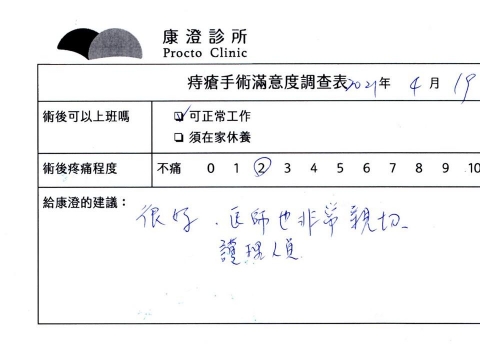 康澄診所
Procto Clinic
痔瘡手術滿意度調查表 2021年 4月 19
術後可以上班嗎 ☑可正常工作
□須在家休養
術後疼痛程度 不痛 0 1 2 3 4 5 6 7 8 9 10
給康澄的建議：
很好．医師也非常親切
護理人員